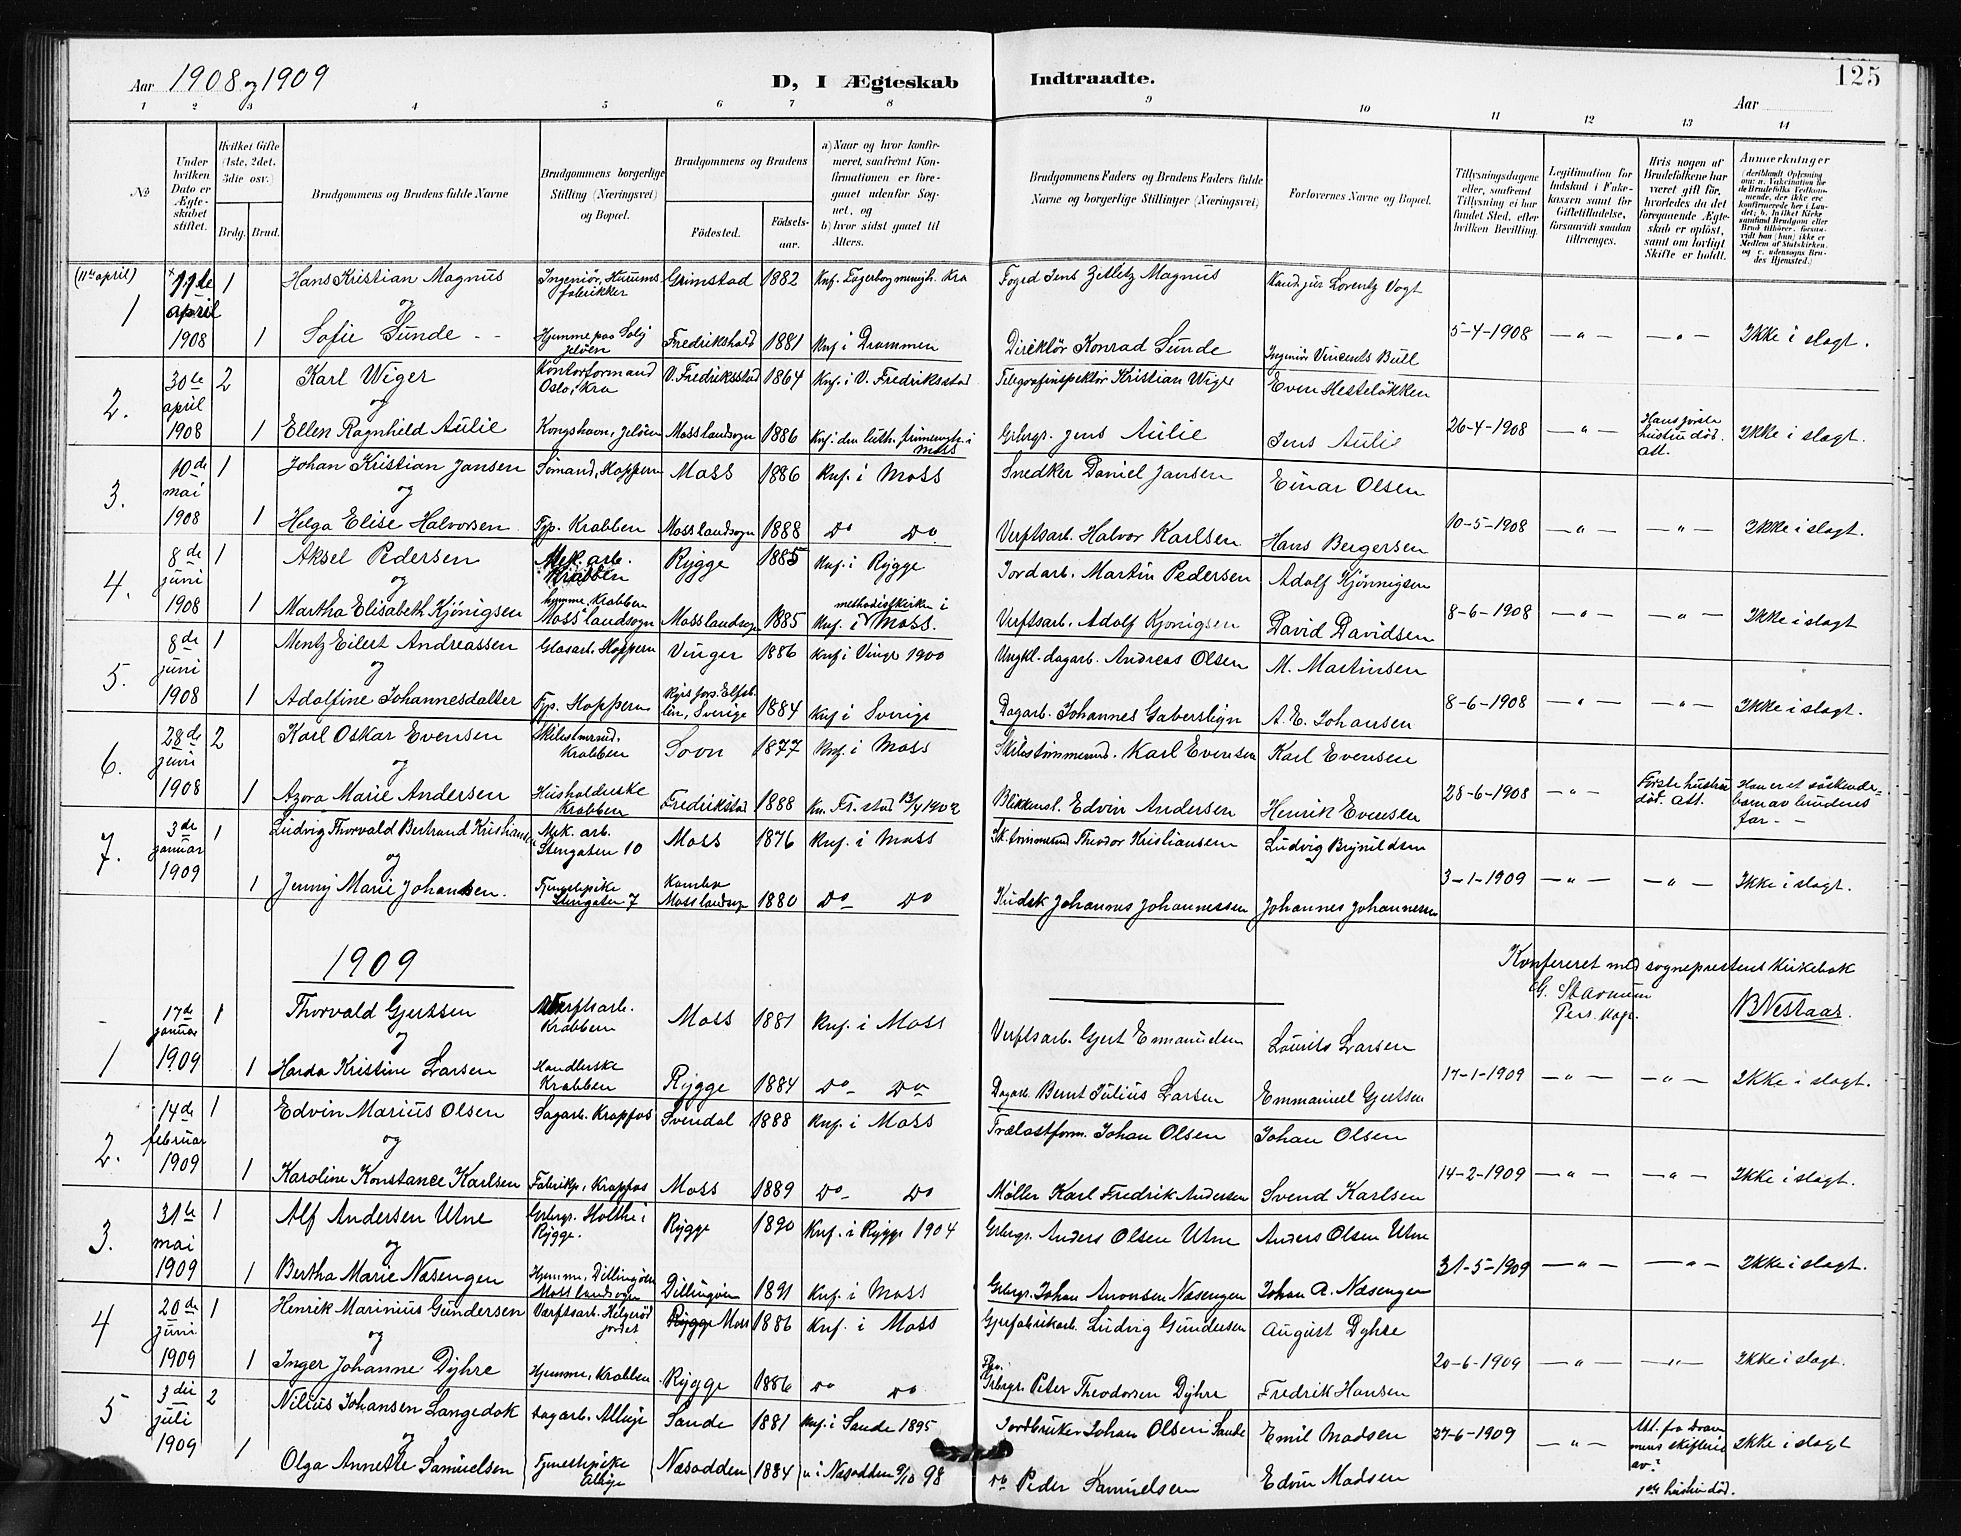 Aar 1908 og 1909
D, I Ægteskab Indtraadte.
125
Aar
1 2 3 4 5 6 7 8 9 10 11 12 13 14
No
Under hvilken Dato er Ægteskabet stiftet.
Hvilket Gifte (1ste, 2det, 3die osv.)
Brdg. Brud.
Brudgommens og Brudens fulde Navne
Brudgommens borgerlige Stilling (Næringsvei) og Bopæl.
Brudgommens og Brudens
Fødested.
Fødselsaar.
a) Naar og hvor konfirmeret, saafremt Konfirmationen er foregaaet udenfor Sognet, og
b) hvor sidst gaaet til Alters.
Brudgommens Faders og Brudens Faders fulde Navne og borgerlige Stillinger (Næringsvei)
Forlovernes Navne og Bopæl.
Tillysningsdagene eller, saafremt Tillysning ei har fundet Sted, efter hvilken Bevilling.
Legitimation for Indskud i Enkekassen samt for Giftetilladelse, forsaavidt saadan tiltrænges.
Hvis nogen af Brudefolkene har været gift før, hvorledes da det foregaaende Ægteskab er opløst, samt om lovligt Skifte er holdt.
Anmerkninger
(11te april) 11te 1 Hans Kristian Magnus Ingeniør, Hurums fabrikker Grimstad 1882 Knf. Uigerbog menigh. Kra Foged Jens Zetlitz Magnus Kand jur Lorentz Vogt
1 april og
1908 1 Sofie Sunde Hjemme paa Solj Jeløen Fredrikshald 1881 Knf i Drammen Direktør Konrad Sunde Ingeniør Vincents Bull 5-4-1908 — " — — " — Ikke i slagt.
30te 2 Karl Wiger Kontorformand Oslo, Kra V. Fredriksstad 1864 Knf. i V. Fredriksstad Telegrafinspektør Kristian Wiger Even Hesteløkken
2. april og
1908 1 Ellen Ragnhild Aulie Kongshavn, Jeløen Moss landsogn 1886 Knf. den luth. frimenigh. i Moss Grbrgr. Jens Aulie Jens Aulie 26-4-1908 — " — Hans første hustru død. Att. Ikke i slagt.
10de 1 Johan Kristian Jansen Sømand, Hoppern Moss 1886 Knf. i Moss Snedker Daniel Jansen Einar Olsen
3. mai og
1908 1 Helga Elise Halvorsen Fyp. Krabben Moss landsogn 1888 Do Do Verftsarb. Halvor Karlsen Hans Bergersen 10-5-1908 — " — — " — Ikke i slagt.
8de 1 Aksel Pedersen Mek. arb. Krabben Rygge 1885 Knf. i Rygge Jordarb. Martin Pedersen Adolf Kjønnigsen
4. juni og
1908 1 Martha Elisabeth Kjønigsen hjemme, Krabben Moss landsogn Moss landsogn 1885 Knf. i methodistkirken i Moss. Verftsarb. Adolf Kjønigsen David Davidsen 8-6-1908 — " — — " — Ikke i slagt
8de 1 Mentz Eilert Andreassen Glasarb. Hoppern Vinger 1886 Knf i Vinger 1900 Ungkl. dagarb. Andreas Olsen M. Martinsen
5. juni og
1908 1 Adolfine Johannesdatter Fyp. Hoppern Elfsb. län, Sverige 1884 Knf i Sverige Dagarb. Johannes Gaberslign A. E. Johansen 8-6-1908 — " — — " — Ikke i slagt.
28de 2 Karl Oskar Evensen Krabben Soon 1877 Knf. i Moss Skibstømmermd. Karl Evensen Karl Evensen
6. juni og
1908 1 Azora Marie Andersen Husholderske Krabben Fredrikstad 1888 Kn. Fr.stad 13/4 1902 Blikkensl. Edvin Andersen Henrik Evensen 28-6-1908 — " — Første hustru død. Att. Han er et søskendebarn av brudens far.
3de 1 Ludvig Thorvald Bertrand Kristiansen Mek. arb. Stengaten 10 Moss 1876 Knf. i Moss Sk. tømmermd Theodor Kristiansen Ludvig Brynildsen
7. januar og
1909 1 Jenny Marie Johansen. Tjenestepike Stengaten 7 Kambo Moss landsogn 1880 Do Do Kudsk Johannes Johannessen Johannes Johannessen 3-1-1909 — " — — " — Ikke i slagt.
1909
Konfereret med sogneprestens kirkebok
BNestaas.
17de 1 Thorvald Gjertsen Verftsarb. Krabben Moss 1881 Knf. i Moss Verftsarb. Gjert Emanuelsen Laurits Larsen
januar og
1 1909 1 Harda Kristine Larsen Handlerske Krabben Rygge 1884 Do Do Dagarb. Bernt Julius Larsen Emmanuel Gjertsen 17-1-1909 — " — — " — Ikke i slagt.
14de 1 Edvin Marius Olsen Sagarb. Krapfos Svendal 1888 Knf. i Moss Trælastform. Johan Olsen Johan Olsen
2. februar og
1909 1 Karoline Konstance Karlsen Fabrikp. Krapfos Moss 1889 Do Do Møller Karl Fredrik Andersen Svend Karlsen 14-2-1909 — " — — " — Ikke i slagt.
31te 1 Alf Andersen Utne Grbrgr. Holthe i Rygge. Rygge 1890 Knf. i Rygge 1904 Grbrgr. Anders Olsen Utne Anders Olsen Utne
3. mai og
1909 1 Bertha Marie Næsengen Hjemme, Dillingøen Moss landsogn Dillingøen 1891 Knf. i Moss Grbrgr. Johan Aronsen Næsengen Johan A. Næsengen 31-5-1909 — " — — " — Ikke i slagt.
20de 1 Henrik Marinius Gundersen Værftsarb. Helgerødjordet Rygge Moss 1886 Knf. i Moss Gjærfabrikarb. Ludvig Gundersen August Dyhre
4 juni og
1909 1 Inger Johanne Dyhre Hjemme, Krabben Rygge 1886 Do Do Grbrgr. Peter Theodorsen Dyhre Fredrik Hansen 20-6-1909 — " — — " — Ikke i slagt.
3die 2 Nilius Johansen Langedok Dagarb. Alby Sande 1881 Knf. i Sande 1895 Jordbruker Johan Olsen Sande Emil Madsen
5 juli og 27-6-1909 — " — Att. fra Drammens skifteri av? Ikke i slagt
1909 1 Olga Annette Samuelsen Tjenestepike Alby Næsodden 1884 " i Næsodden 9/10 98 Do Peder Samuelsen Edvin Madsen 1ste hustru død.